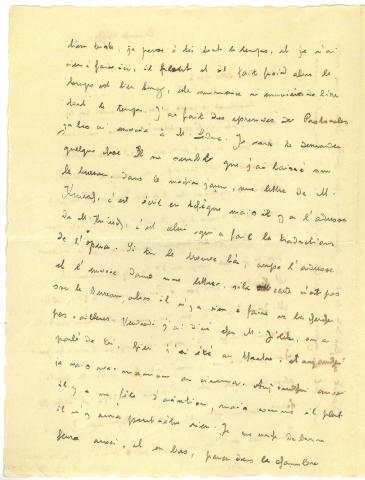 bien triste, je pense à toi tout le temps, et je n'ai
rien à faire ici, il pleut et il fait froid alors le
temps est bien long, je commence à m'ennuyer de lire
tout le temps. J'ai fait des épreuves des Pastorales
je les ai envoyés à M. Leduc. Je vais te demander
quelque chose. Il me semble que j'ai laissé sur
le bureau, dans le machin jaune, une lettre de M.
c'est écrit en tchèque mais il y a l'adresse
de M. c'est celui qui a fait la traduction
de l'opéra. Si tu la trouves là, coupe l'adresse
et l'envoie dans une lettre, si la carte n'est pas
sur le bureau, alors il n'y a rien à faire ne la cherche
pas ailleurs. Vendredi j'ai dîné chez M. on a
parlé de toi. Hier j'ai été au et aujourd'hui
je vais avec maman au cinéma. Aujourd'hui aussi
il y a une fête d'aviation, mais comme il pleut
il n'y aura peut-être rien. Je me suis de bonne
heure aussi, et en bas, parce dans la chambre